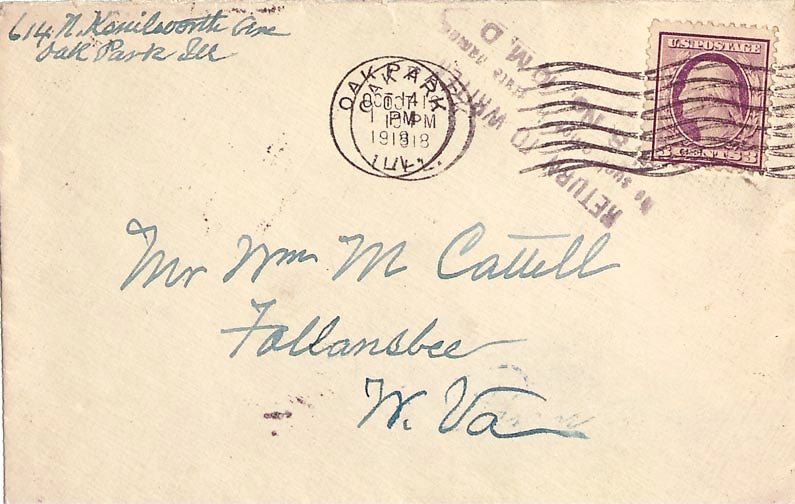 614 N. Kenilworth Ave
Oak Park Ill
OAK PARK
OCT 14
1 PM
1918
ILL.
RETURN TO WRITER
No such
U.S. POSTAGE
3 CENTS 3
Mr Wm M Cattell
Follansbee
W. Va